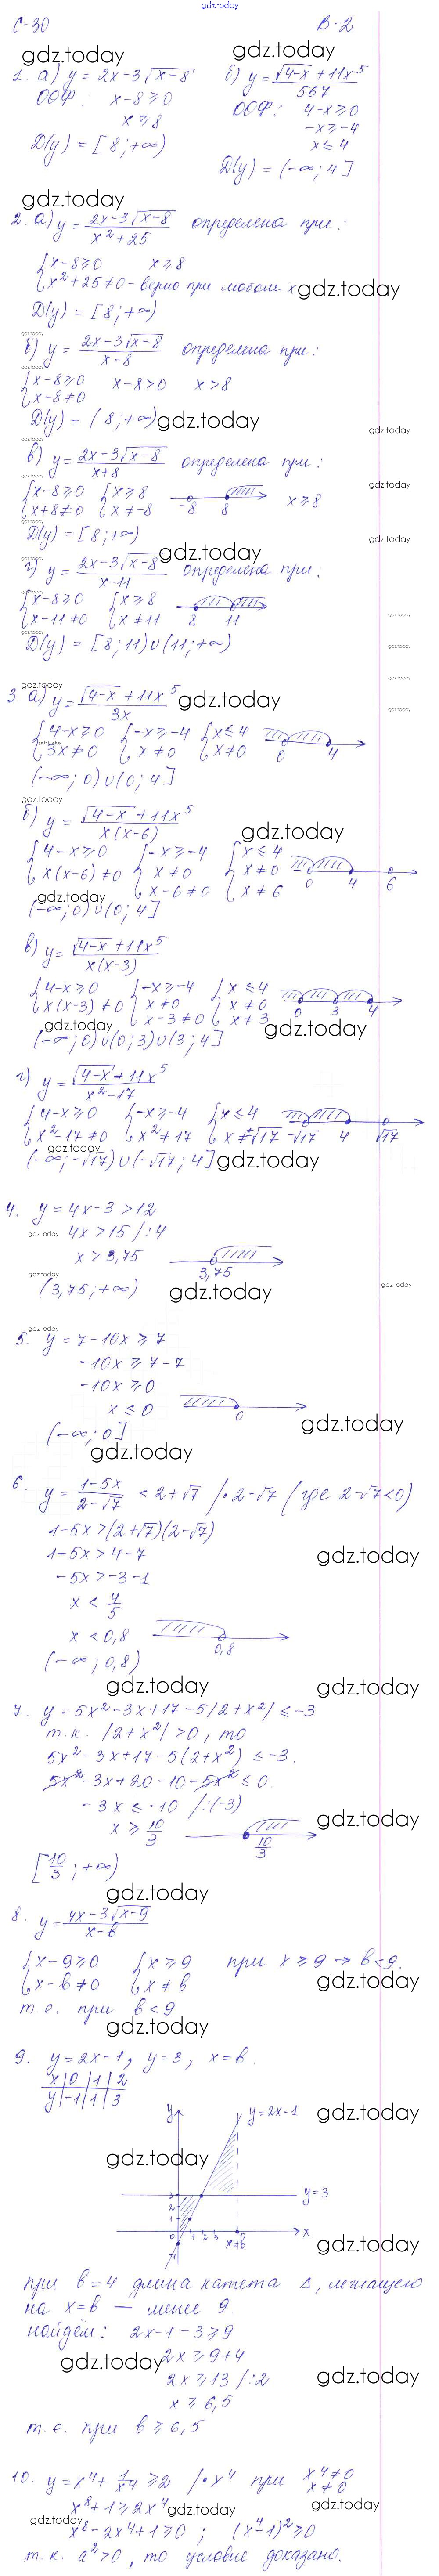 gdz.today
С-30 В-2
gdz.today gdz.today
1. а) y = 2x-3√x-8 б) y = √4-x + 11x⁵ / 567
ООФ: x-8≥0 ООФ: 4-x≥0
x≥8 -x≥-4
D(y) = [8;+∞) x≤4
D(y) = (-∞;4]
gdz.today
2. а) y = 2x-3√x-8 / x²+25 определена при:
{x-8≥0 x≥8
{x²+25≠0 - верно при любом x gdz.today
D(y) = [8;+∞)
gdz.today
б) y = 2x-3√x-8 / x-8 определена при:
{x-8≥0 x-8>0 x>8
{x-8≠0
D(y) = (8;+∞) gdz.today
gdz.today
в) y = 2x-3√x-8 / x+8 определена при:
{x-8≥0 {x≥8 x≥8
{x+8≠0 {x≠-8 -8 8
D(y) = [8;+∞)
gdz.today
г) y = 2x-3√x-8 / x-11 определена при:
{x-8≥0 {x≥8
{x-11≠0 {x≠11 8 11
D(y) = [8;11)∪(11;+∞)
gdz.today
3. а) y = √4-x + 11x⁵ / 3x gdz.today
{4-x≥0 {-x≥-4 {x≤4
{3x≠0 {x≠0 {x≠0 0 4
(-∞;0)∪(0;4]
gdz.today
б) y = √4-x + 11x⁵ / x(x-6) gdz.today
{4-x≥0 {-x≥-4 {x≤4
{x(x-6)≠0 {x≠0 {x≠0 0 4 6
{x-6≠0 {x≠6
gdz.today
(-∞;0)∪(0;4]
в) y = √4-x + 11x⁵ / x(x-3)
{4-x≥0 {-x≥-4 {x≤4
{x(x-3)≠0 {x≠0 {x≠0 0 3 4
{x-3≠0 {x≠3
gdz.today gdz.today
(-∞;0)∪(0;3)∪(3;4]
г) y = √4-x + 11x⁵ / x²-17
{4-x≥0 {-x≥-4 {x≤4
{x²-17≠0 {x²≠17 {x≠±√17 -√17 4 √17
gdz.today
(-∞;-√17)∪(-√17;4] gdz.today
4. y = 4x-3>12
gdz.today 4x>15 /:4
x>3,75
gdz.today 3,75
(3,75;+∞) gdz.today
gdz.today
5. y = 7-10x≥7
-10x≥7-7
-10x≥0
x≤0 0
(-∞;0] gdz.today
gdz.today
6. y = 1-5x / 2-√7 <2+√7 /·2-√7 (где 2-√7<0)
1-5x>(2+√7)(2-√7)
1-5x>4-7 gdz.today
-5x>-3-1
x<4/5
x<0,8 0,8
(-∞;0,8)
gdz.today gdz.today
7. y = 5x²-3x+17-5|2+x²|≤-3
т.к. |2+x²|>0, то
5x²-3x+17-5(2+x²)≤-3.
5x²-3x+20-10-5x²≤0.
-3x≤-10 /:(-3) gdz.today
x≥10/3 10/3
[10/3;+∞)
gdz.today
8. y = 4x-3√x-9 / x-b
{x-9≥0 {x≥9 при x≥9 → b<9.
{x-b≠0 {x≠b gdz.today
т.е. при b<9
gdz.today
9. y=2x-1, y=3, x=b.
x|0|1|2
y|-1|1|3
y y=2x-1 gdz.today
gdz.today
3 y=3
2
1
0 1 2 3 x=b x
-1 gdz.today
при b=4 длина катета Δ, лежащего
на x=b — менее 9.
найдём: 2x-1-3≥9
gdz.today 2x≥9+4
2x≥13 /:2 gdz.today
x≥6,5
т.е. при b≥6,5
10. y=x⁴+1/x⁴≥2 /·x⁴ при x⁴≠0
x≠0
x⁸+1≥2x⁴ gdz.today gdz.today
gdz.today
x⁸-2x⁴+1≥0; (x⁴-1)²≥0
т.к. a²>0, то условие доказано.